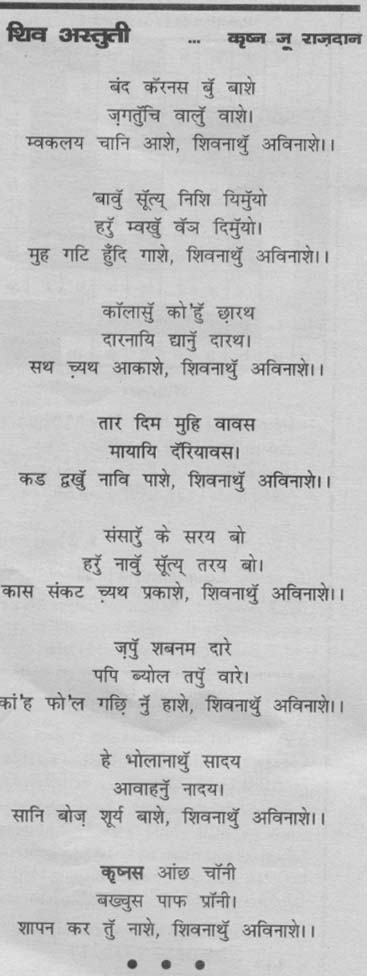 शिव अस्तुती ... कृष्न जू राज़दान
बंद कॅरनस बुॅ बाशे
ज़गतुॅचि वालुॅ वाशे।
म्वकलय चानि आशे, शिवनाथुॅ अविनाशे।।
बावुॅ सूॅत्य् निशि यिमुॅयो
हरुॅ म्वखुॅ वॅञ दिमुॅयो।
मुह गटि हुॅंदि गाशे, शिवनाथुॅ अविनाशे।।
कॉलासुॅ को'हुॅ छ़ारथ
दारनायि द्यानुॅ दारथ।
सथ च़्यथ आकाशे, शिवनाथुॅ अविनाशे।।
तार दिम मुहि वावस
मायायि दॅरियावस।
कड द्वखुॅ नावि पाशे, शिवनाथुॅ अविनाशे।।
संसारुॅ के सरय बो
हरुॅ नावुॅ सूॅत्य् तरय बो।
कास संकट च़्यथ प्रकाशे, शिवनाथुॅ अविनाशे।।
ज़पुॅ शबनम दारे
पपि ब्योल तपुॅ वारे।
कां'ह फो'ल गछि़ नुॅ हाशे, शिवनाथुॅ अविनाशे।।
हे भोलानाथुॅ सादय
आवाहनुॅ नादय।
सानि बोज़ शूर्य बाशे, शिवनाथुॅ अविनाशे।।
कृष्नस आंछ चॉनी
बख्चुस पाफ प्रॉनी।
शापन कर तुॅ नाशे, शिवनाथुॅ अविनाशे।।
• • •